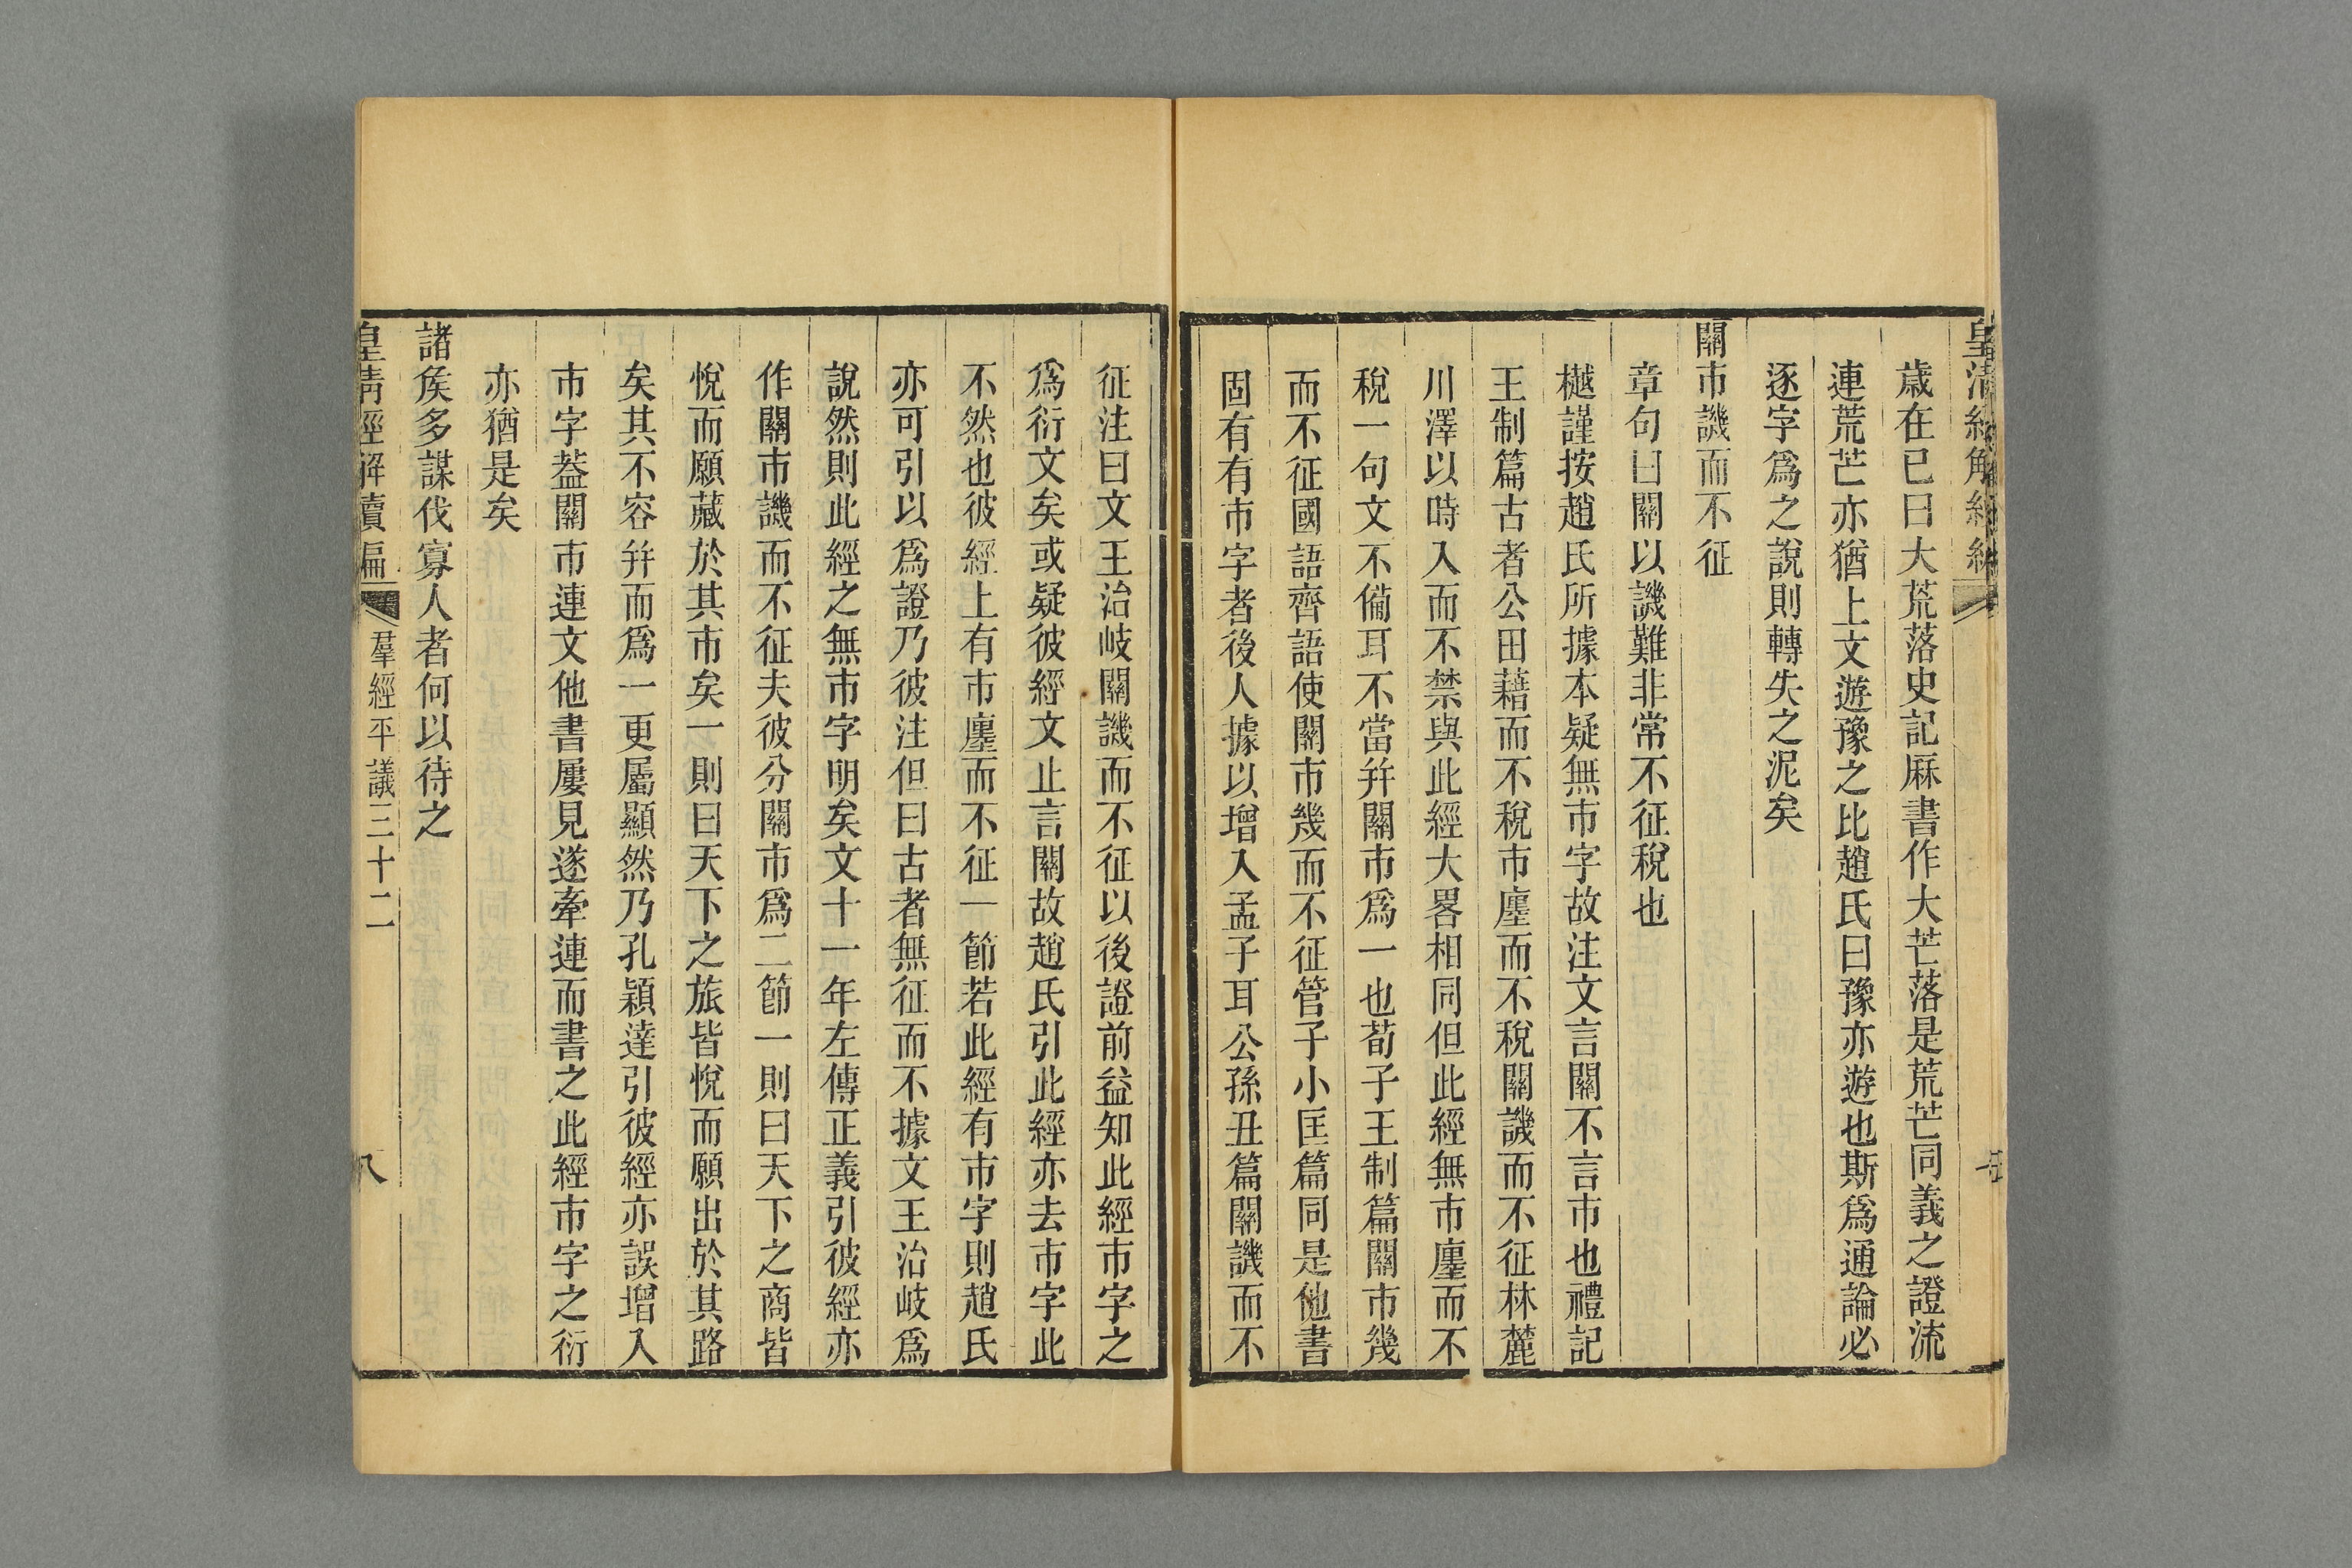 歲在巳曰大荒落史記厤書作大芒落是荒芒同義之證流
連荒芒亦猶上文遊豫之比趙氏曰豫亦遊也斯爲通論必
逐字爲之說則轉失之泥矣
關市譏而不征
章句曰關以譏難非常不征稅也
樾謹按趙氏所據本疑無市字故注文言關不言市也禮記
王制篇古者公田藉而不稅市廛而不稅關譏而不征林麓
川澤以時入而不禁與此經大畧相同但此經無市廛而不
稅一句文不僃耳不當幷關市爲一也荀子王制篇關市幾
而不征國語齊語使關市幾而不征管子小匡篇同是他書
固有有市字者後人據以增入孟子耳公孫丑篇關譏而不
征注曰文王治岐關譏而不征以後證前益知此經市字之
爲衍文矣或疑彼經文止言關故趙氏引此經亦去市字此
不然也彼經上有市廛而不征一節若此經有市字則趙氏
亦可引以爲證乃彼注但曰古者無征而不據文王治岐爲
說然則此經之無市字明矣文十一年左傳正義引彼經亦
作關市譏而不征夫彼分關市爲二節一則曰天下之商皆
悅而願藏於其市矣一則曰天下之旅皆悅而願出於其路
矣其不容幷而爲一更屬顯然乃孔穎達引彼經亦誤增入
市字葢關市連文他書屢見遂牽連而書之此經市字之衍
亦猶是矣
諸矦多謀伐寡人者何以待之
皇淸經解續編
羣經平議三十二
八